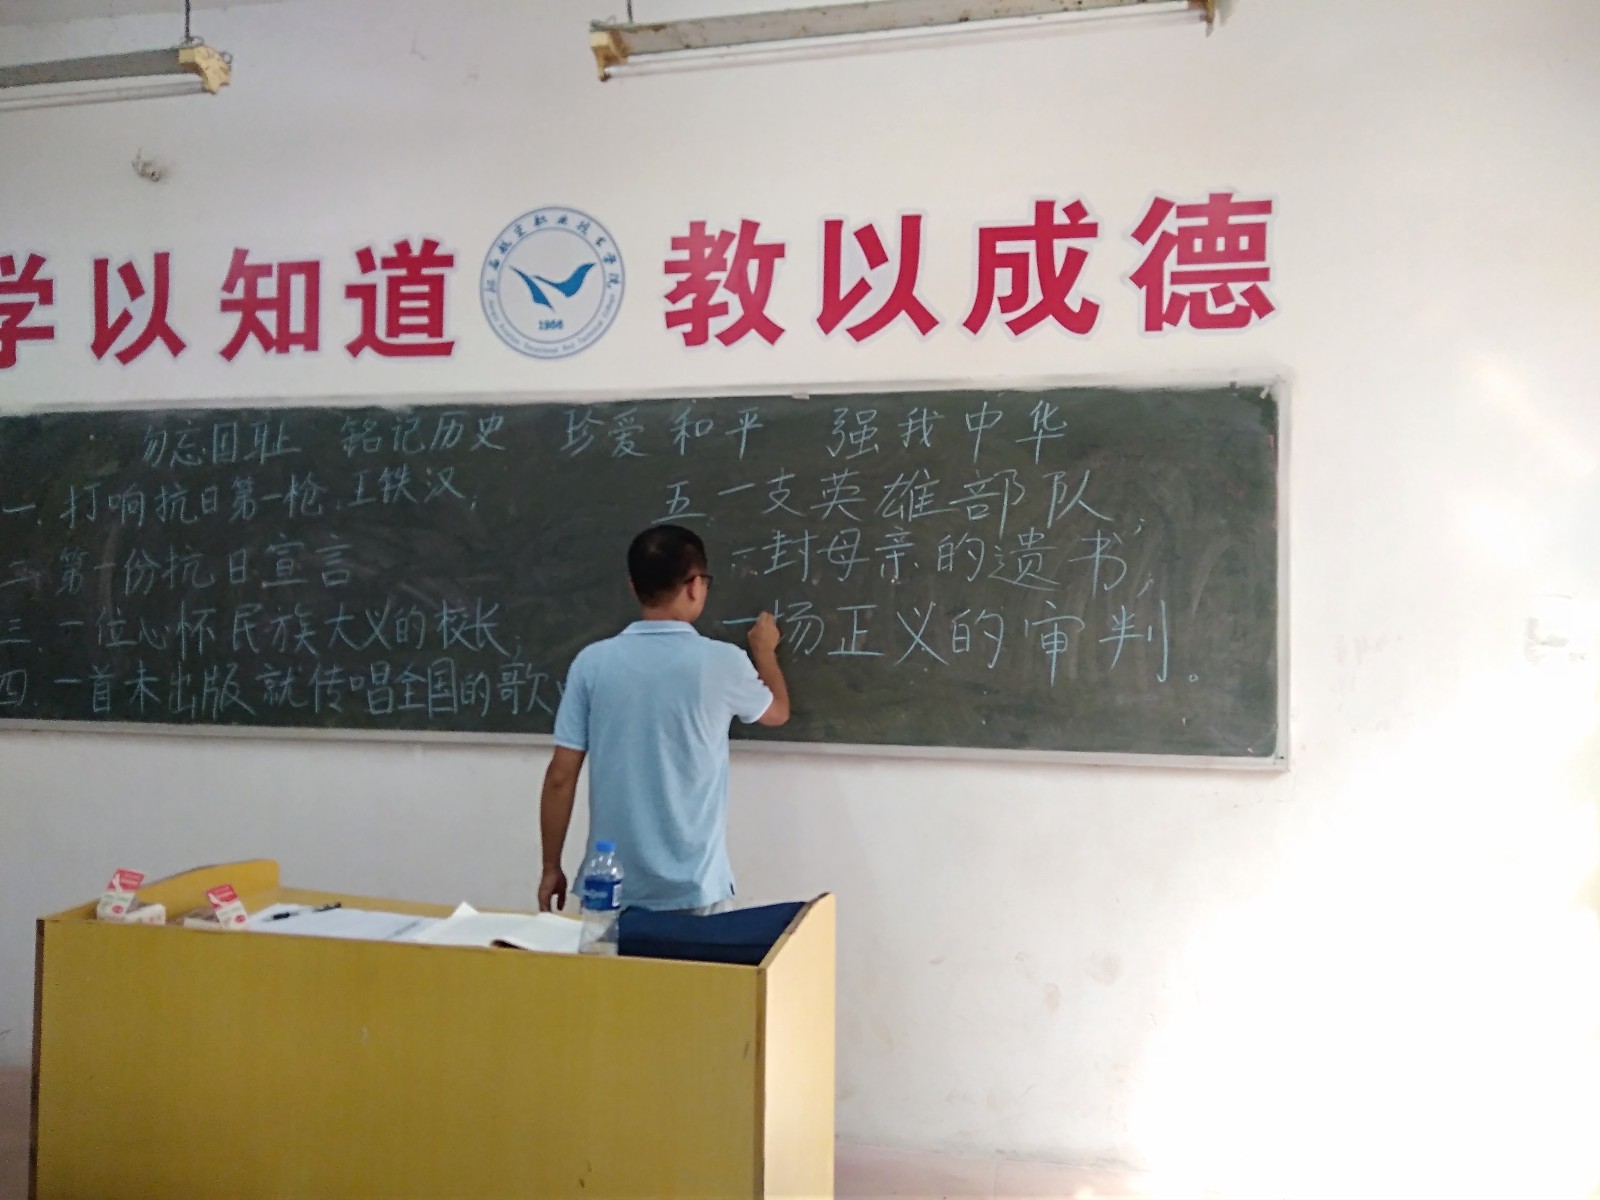 学以知道 教以成德
江西航空职业技术学院
1966
勿忘国耻 铭记历史 珍爱和平 强我中华
一. 打响抗日第一枪、王铁汉;
二. 第一份抗日宣言
三. 一位心怀民族大义的校长;
四. 一首未出版就传唱全国的歌
五. 一支英雄部队;
一封母亲的遗书;
一场正义的审判。